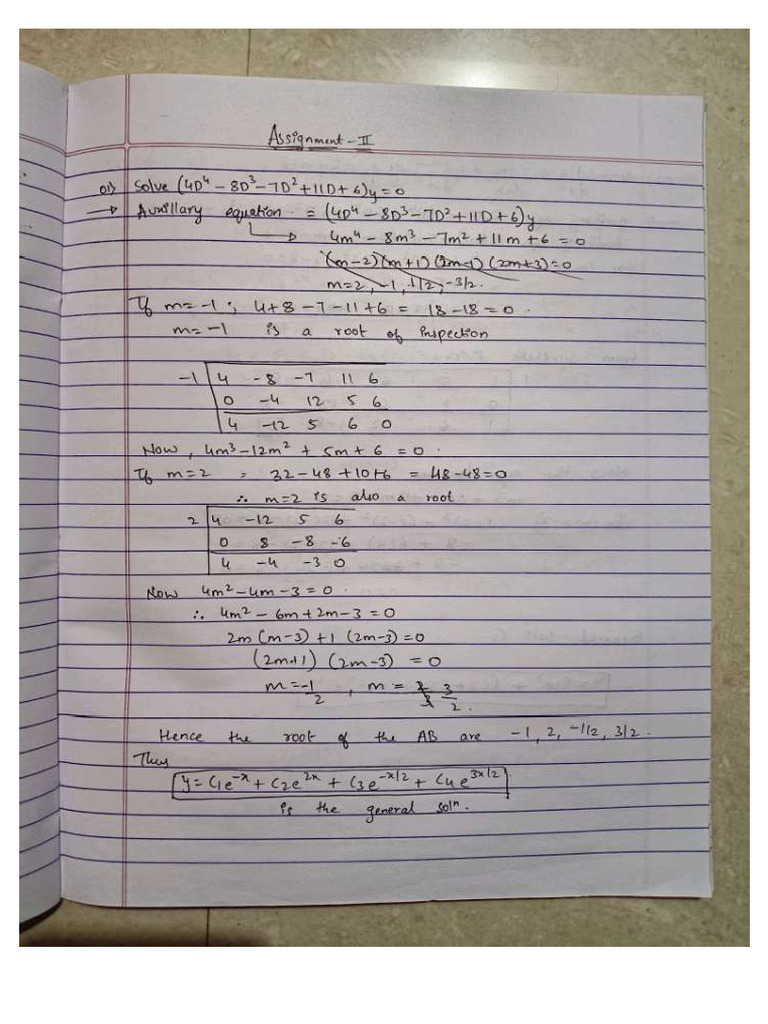 Assignment - II
Q1) Solve (4D⁴ - 8D³ - 7D² + 11D + 6)y = 0
→ Auxillary equation = (4D⁴ - 8D³ - 7D² + 11D + 6)y
↳ 4m⁴ - 8m³ - 7m² + 11m + 6 = 0
(m-2)(m+1)(2m-1)(2m+3)=0
m=2, -1, 1/2, -3/2.
If m=-1; 4+8-7-11+6 = 18-18=0.
m=-1 is a root of inspection
-1 | 4 -8 -7 11 6
0 -4 12 5 6
4 -12 5 6 0
Now, 4m³-12m² + 5m + 6 = 0.
If m=2 = 32-48+10+6 = 48-48=0
∴ m=2 is also a root
2 | 4 -12 5 6
0 8 -8 -6
4 -4 -3 0
Now 4m²-4m-3=0.
∴ 4m² - 6m + 2m - 3 = 0
2m(m-3) + 1(2m-3)=0
(2m+1) (2m-3) = 0
m = -1/2, m = 3/2.
Hence the root of the AB are -1, 2, -1/2, 3/2.
Thus
y = C₁e⁻ˣ + C₂e²ˣ + C₃e^{-x/2} + C₄e^{3x/2}
is the general solⁿ.